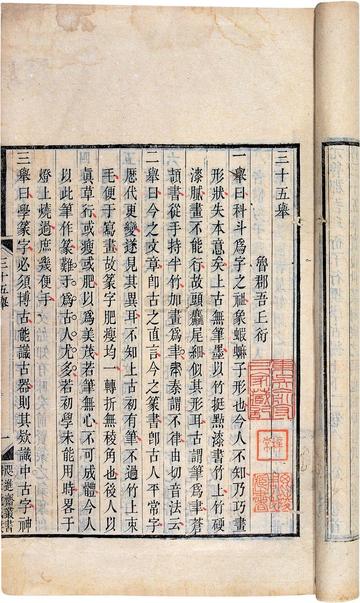 三十五舉
魯郡吾丘衍
一舉曰科斗爲字之祖象蝦蟇子形也今人不知乃巧畫
形狀失本意矣上古無筆墨以竹挺點漆書竹上竹硬
漆膩畫不能行故頭麤尾細似其形耳古謂筆爲聿蒼
頡書從手持半竹加畫爲聿秦謂不律由切音法云
二舉曰今之文章卽古之直言今之篆書卽古人平常字
歷代更變遂見其異耳不知上古初有筆不過竹上束
毛便于寫畫故篆字肥瘦均一轉折無稜角也後人以
眞草行或瘦或肥以爲美茂若筆無心不可成體今人
以此筆作篆難于爲古人尤多若初學未能用時畧于
燈上燒過庶幾便手
三舉曰學篆字必須博古能識古器則其款識中古字神
三十五舉
一
咫進齋叢書